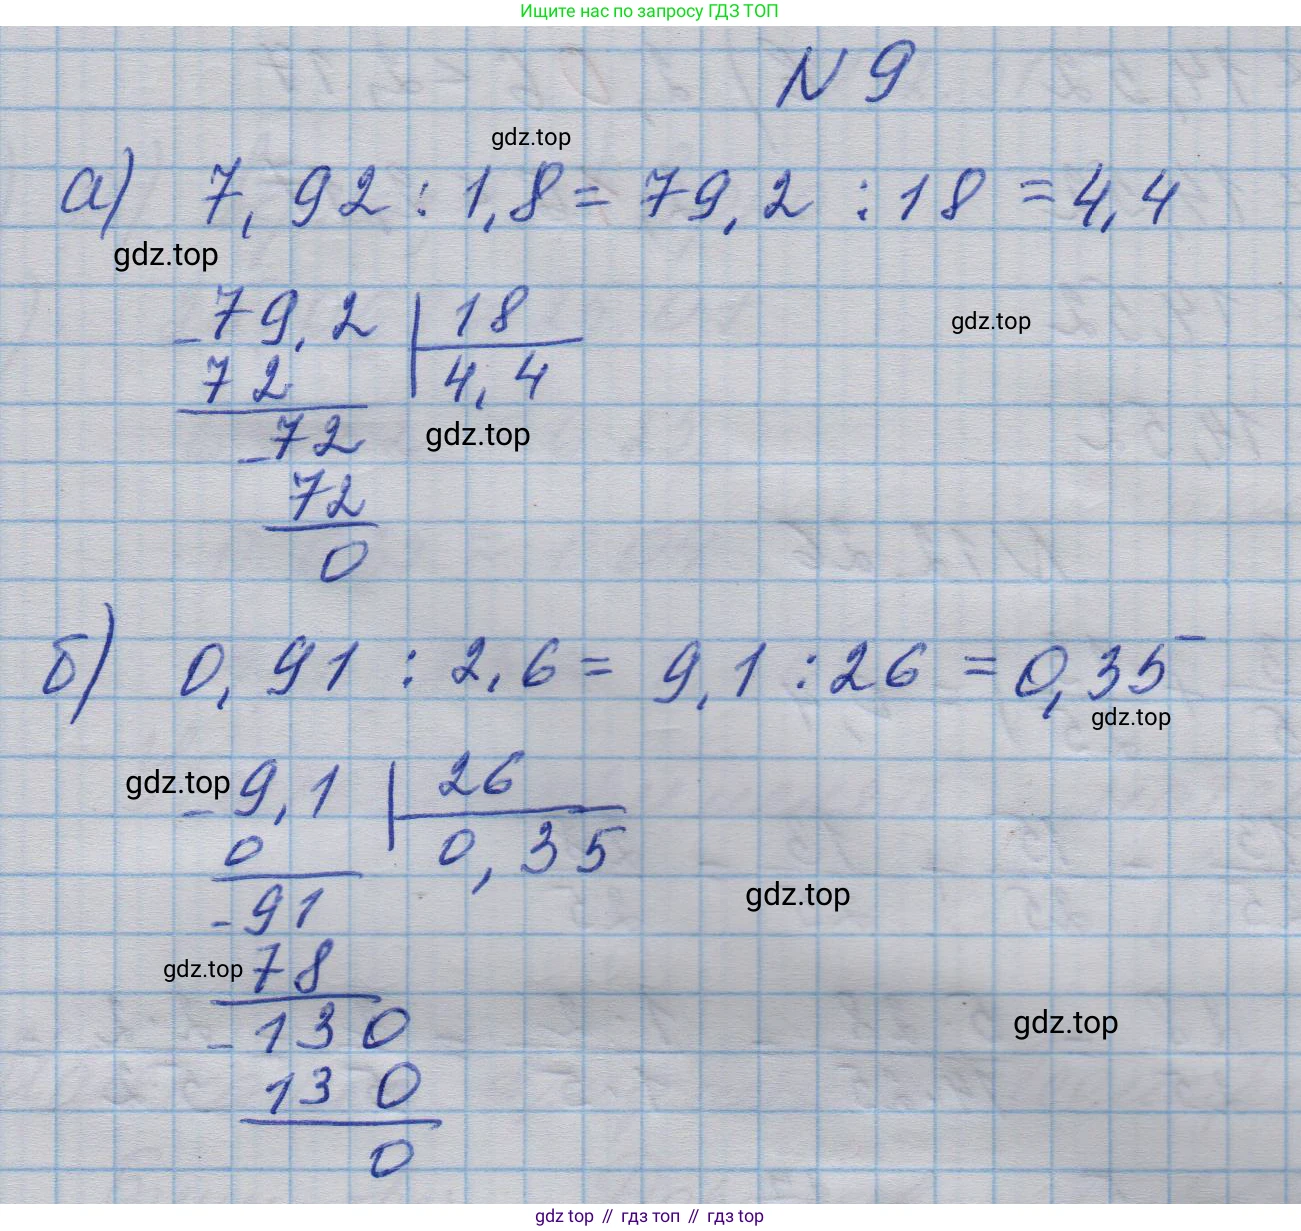 Ищите нас по запросу ГДЗ ТОП
N 9
gdz.top
а) 7,92 : 1,8 = 79,2 : 18 = 4,4
gdz.top
- 79,2 | 18
gdz.top
72 4,4
gdz.top
- 72
72
0
б) 0,91 : 2,6 = 9,1 : 26 = 0,35
gdz.top
gdz.top
- 9,1 | 26
0 0,35
gdz.top
- 91
gdz.top
78
gdz.top
- 130
130
0
gdz.top // гдз топ // гдз top